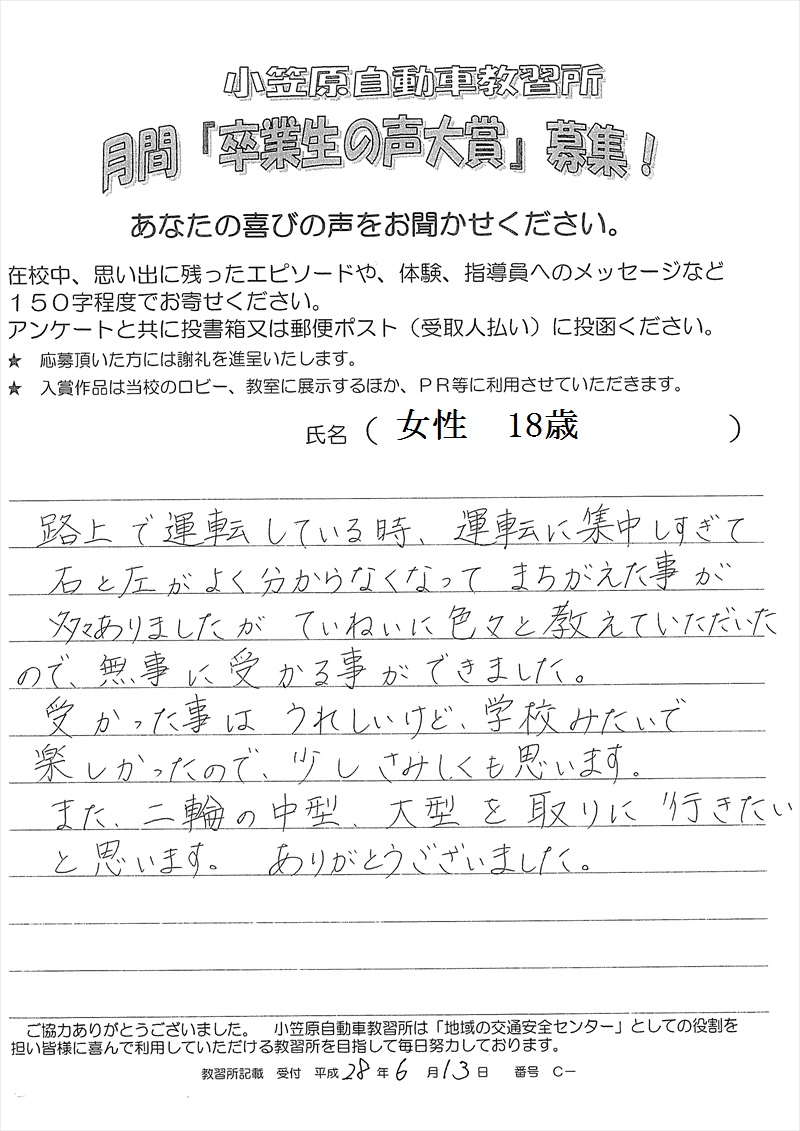 小笠原自動車教習所
月間「卒業生の声大賞」募集！
あなたの喜びの声をお聞かせください。
在校中、思い出に残ったエピソードや、体験、指導員へのメッセージなど
１５０字程度でお寄せください。
アンケートと共に投書箱又は郵便ポスト（受取人払い）に投函ください。
★　応募頂いた方には謝礼を進呈いたします。
★　入賞作品は当校のロビー、教室に展示するほか、ＰＲ等に利用させていただきます。
氏名（ 女性　18歳 ）
路上で運転している時、運転に集中しすぎて
右と左がよく分からなくなって まちがえた事が
多々ありましたが ていねいに色々と教えていただいた
ので、無事に受かる事ができました。
受かった事は うれしいけど、学校みたいで
楽しかったので、少しさみしくも思います。
また、二輪の中型、大型を取りに行きたい
と思います。 ありがとうございました。
ご協力ありがとうございました。　小笠原自動車教習所は「地域の交通安全センター」としての役割を
担い皆様に喜んで利用していただける教習所を目指して毎日努力しております。
教習所記載　受付　平成28年6月13日　番号　Ｃ－